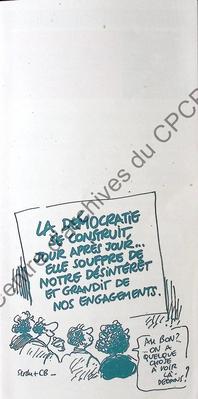 LA DÉMOCRATIE
SE CONSTRUIT,
JOUR APRÈS JOUR...
ELLE SOUFFRE DE
NOTRE DÉSINTÉRÊT
ET GRANDIT DE
NOS ENGAGEMENTS.
AH BON?
... ON A
QUELQUE
CHOSE
À VOIR
LÀ-
DEDANS?
Centre d'archives du CPCP